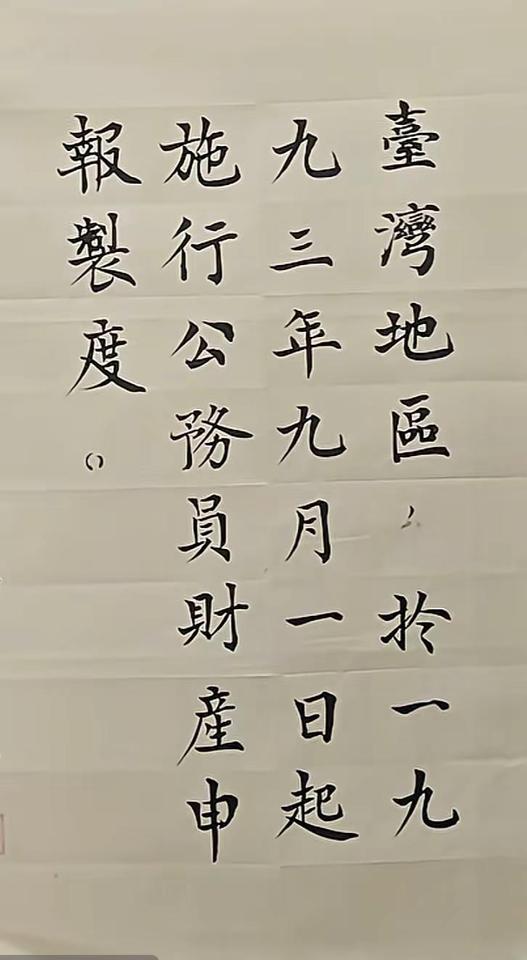 臺灣地區，於一九
九三年九月一日起
施行公務員財産申
報製度。